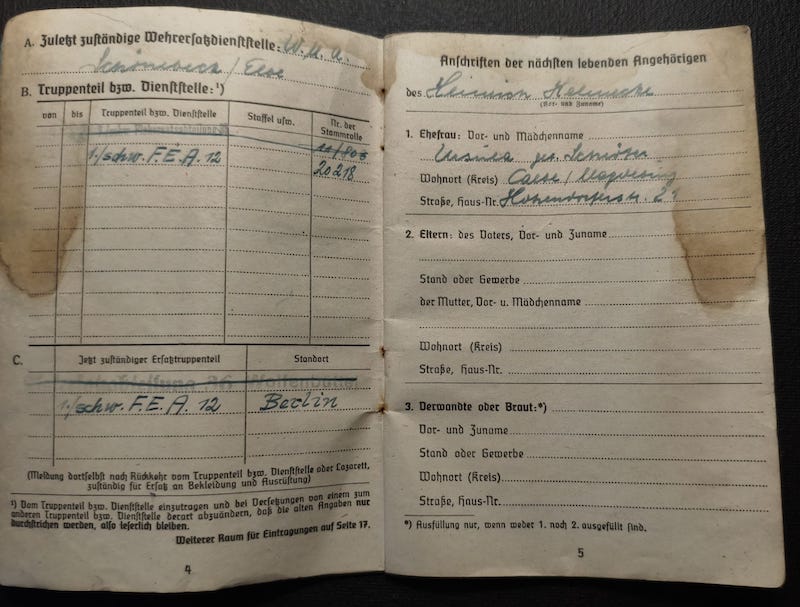 A. Zuletzt zuständige Wehrersatzdienststelle: W. M. A.
Schönebeck / Elbe
B. Truppenteil bzw. Dienststelle:¹)
von bis Truppenteil bzw. Dienststelle Staffel usw. Nr. der Stammrolle
1./schw. F. E. A. 12
20218
C. Jetzt zuständiger Ersatztruppenteil Standort
Wolfenbüttel
1./schw. F. E. A. 12 Berlin
(Meldung dortselbst nach Rückkehr vom Truppenteil bzw. Dienststelle oder Lazarett,
zuständig für Ersatz an Bekleidung und Ausrüstung)
¹) Vom Truppenteil bzw. Dienststelle einzutragen und bei Versetzungen von einem zum
anderen Truppenteil bzw. Dienststelle derart abzuändern, daß die alten Angaben nur
durchstrichen werden, also leserlich bleiben.
Weiterer Raum für Eintragungen auf Seite 17.
4
Anschriften der nächsten lebenden Angehörigen
des Heinrich
(Vor- und Zuname)
1. Ehefrau: Vor- und Mädchenname
Ursula geb.
Wohnort (Kreis)
Straße, Haus-Nr.
2. Eltern: des Vaters, Vor- und Zuname
Stand oder Gewerbe
der Mutter, Vor- u. Mädchenname
Wohnort (Kreis)
Straße, Haus-Nr.
3. Verwandte oder Braut:*)
Vor- und Zuname
Stand oder Gewerbe
Wohnort (Kreis)
Straße, Haus-Nr.
*) Ausfüllung nur, wenn weder 1. noch 2. ausgefüllt sind.
5